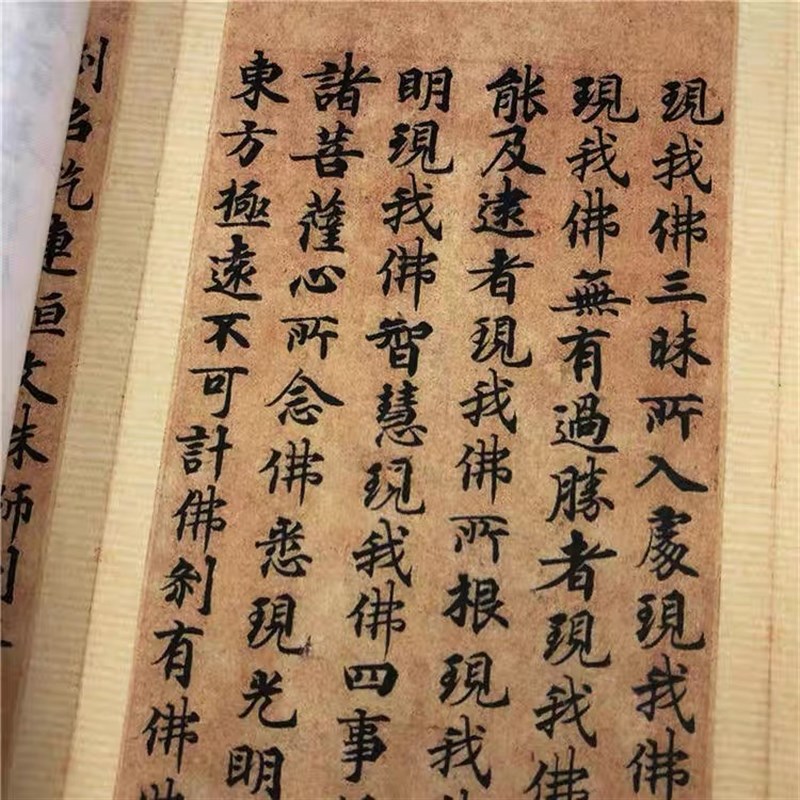 現我佛三昧所入處現我佛
現我佛無有過勝者現我佛
能及逮者現我佛所根現我
明現我佛智慧現我佛四事
諸菩薩心所念佛悉現光明
東方極遠不可計佛刹有佛